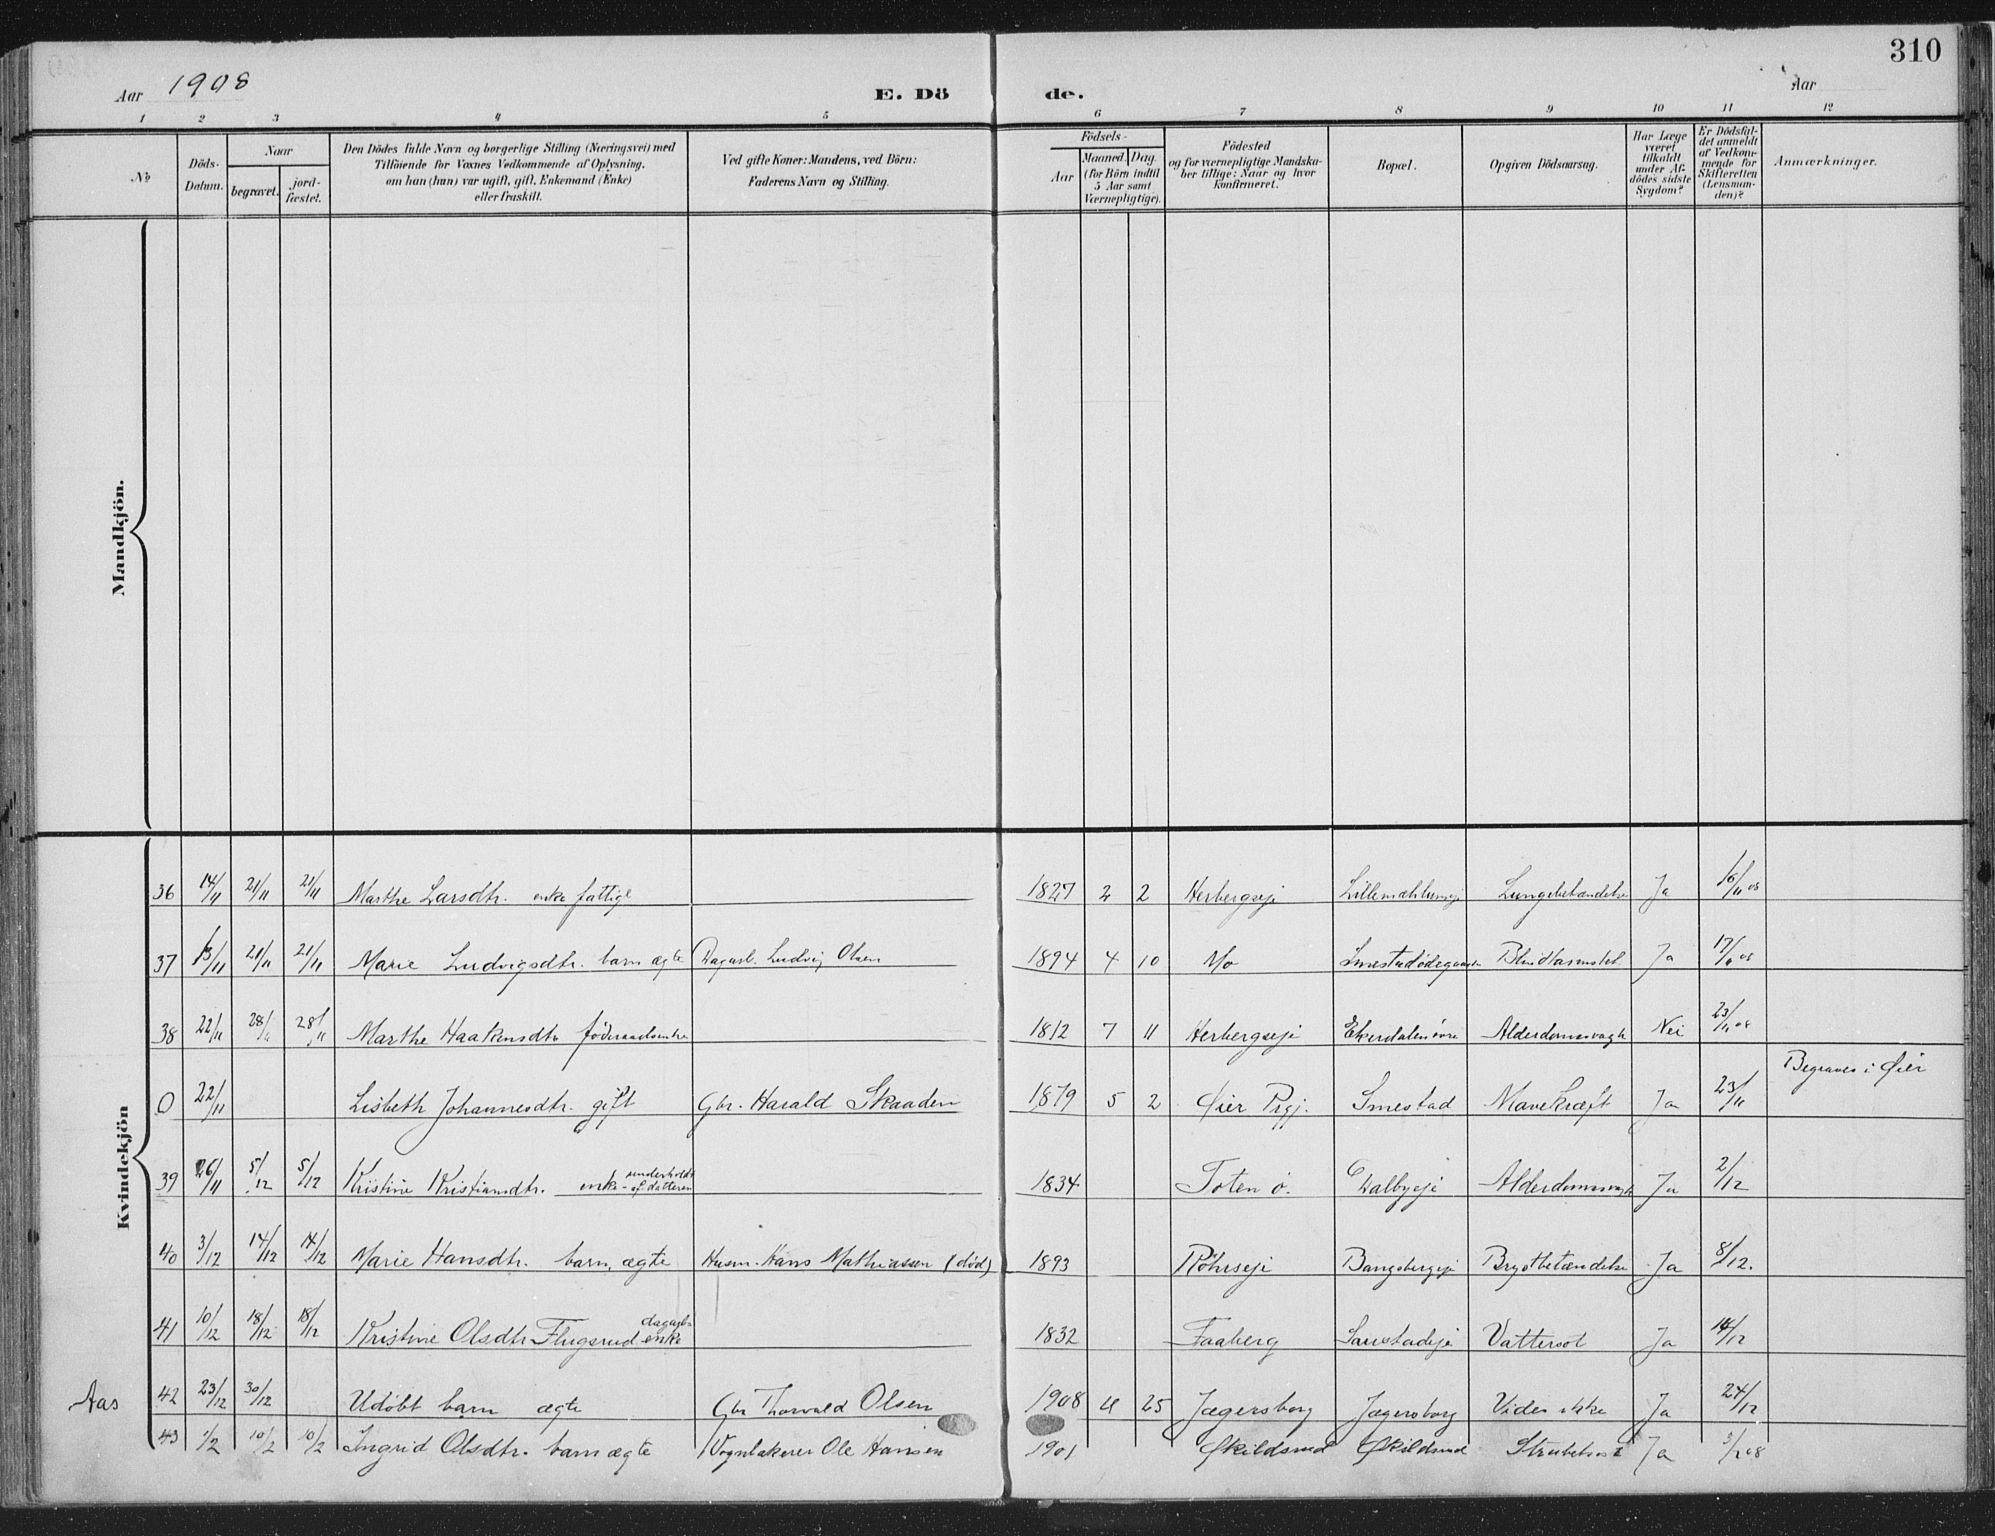 310
Aar 1908
E. Dö de.
Aar
1 2 3 4 5 6 7 8 9 10 11 12
No
Döds-
Datum.
Naar
begravet.
jord-
fæstet.
Den Dödes fulde Navn og borgerlige Stilling (Næringsvei) med
Tilföiende for Voxnes Vedkommende af Oplysning,
om han (hun) var ugift, gift, Enkemand (Enke)
eller fraskilt.
Ved gifte Koner: Mandens, ved Börn:
Faderens Navn og Stilling.
Födsels-
Aar
Maaned. Dag.
(for Börn indtil
5 Aar samt
Værnepligtige).
Födested
og for værnepligtige Mandska-
ber tillige: Naar og hvor
konfirmeret.
Bopæl.
Opgiven Dödsaarsag.
Har Læge
været
tilkaldt
under Af-
dödes sidste
Sygdom?
Er Dödsfal-
det anmeldt
af Vedkom-
mende for
Skifteretten
(Lensman-
den)?
Anmærkninger.
Mandkjön.
Kvindekjön
36 14/11 21/11 21/11 Marthe Larsdtr. enke fattigl 1827 2 2 Herbergseje Ja 16/11 08
37 13/11 21/11 21/11 Marie Ludvigsdtr. barn ægte Dagarb. Ludvig Olsen 1894 4 10 Mo Ja 17/11 08
38 22/11 28/11 28/11 Marthe Haakensdtr föderaadsenke 1812 7 11 Herbergseje Ekerdalen övre Alderdomssvagh Nei 23/11 08
0 22/11 Lisbeth Johannesdtr. gift Gbr. Harald Skaaden 1879 5 2 Øier Prgj. Smestad Mavekræft Ja 23/11 Begraves i Øier
39 26/11 5/12 5/12 Kristine Kristiansdtr. enke - underholdt af datteren 1834 Toten ö. Dalbyeje Alderdomssvagh Ja 2/12
40 3/12 14/12 14/12 Marie Hansdtr. barn, ægte Husm. Hans Mathiassen (död) 1893 Röhrseje Bangsbergeje Brystbetændelse Ja 8/12.
41 10/12 18/12 18/12 Kristine Olsdtr. Flugsrud dagarb- enke 1832 Faaberg Vattersot Ja 14/12
Aas 42 23/12 30/12 Udöbt barn ægte Gbr Thorvald Olsen 1908 4 25 Jægersborg Jægersborg Vides ikke Ja 24/12
43 1/2 10/2 10/2 Ingrid Olsdtr. barn ægte Ole Hansen 1901 Økildsrud Økildsrud Ja 3/2 08